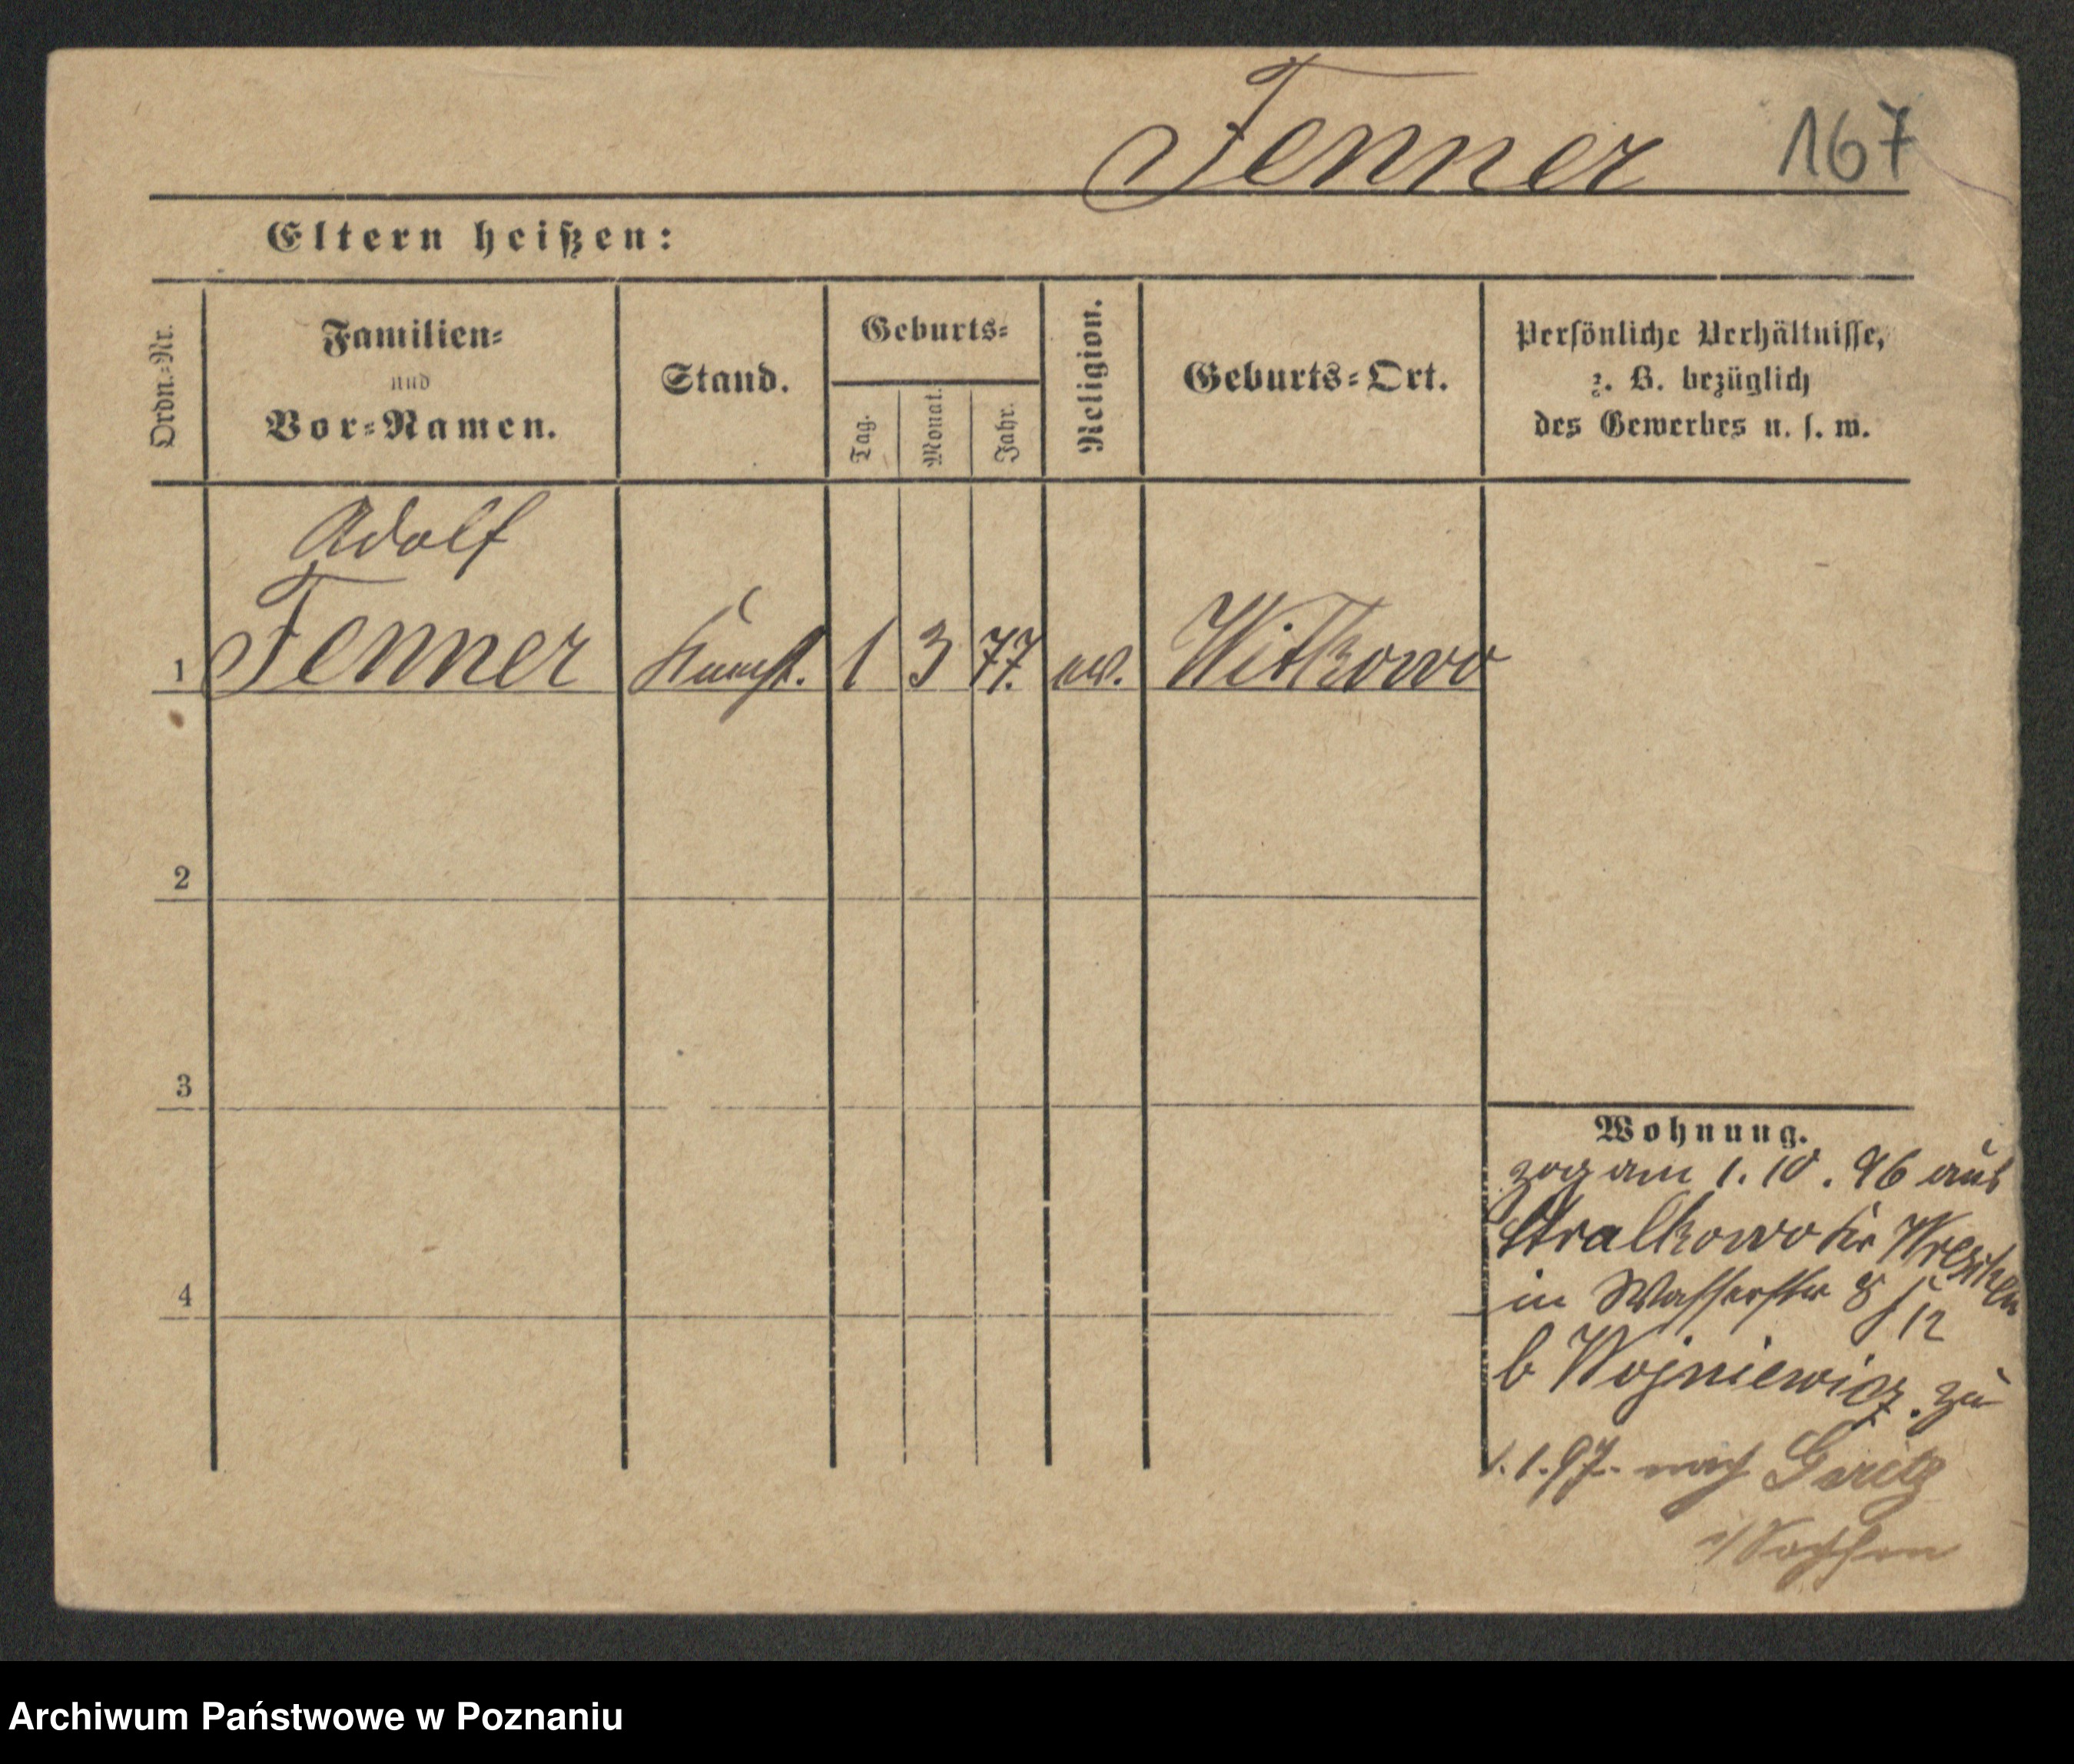 Fenner 167
Eltern heißen:
Ordn.-Nr.
Familien-
und
Vor-Namen.
Stand.
Geburts-
Tag.
Monat.
Jahr.
Religion.
Geburts-Ort.
Persönliche Verhältnisse,
z. B. bezüglich
des Gewerbes u. s. w.
Adolf
1 Fenner 1 3 77. Witkowo
2
3
4
Wohnung.
zog am 1. 10. 96 aus
Stralkowo Kr Wreschen
in Wasserstr 8/12
b Wojniewicz. zu
1.1.97. nach
i/Sachsen
Archiwum Państwowe w Poznaniu